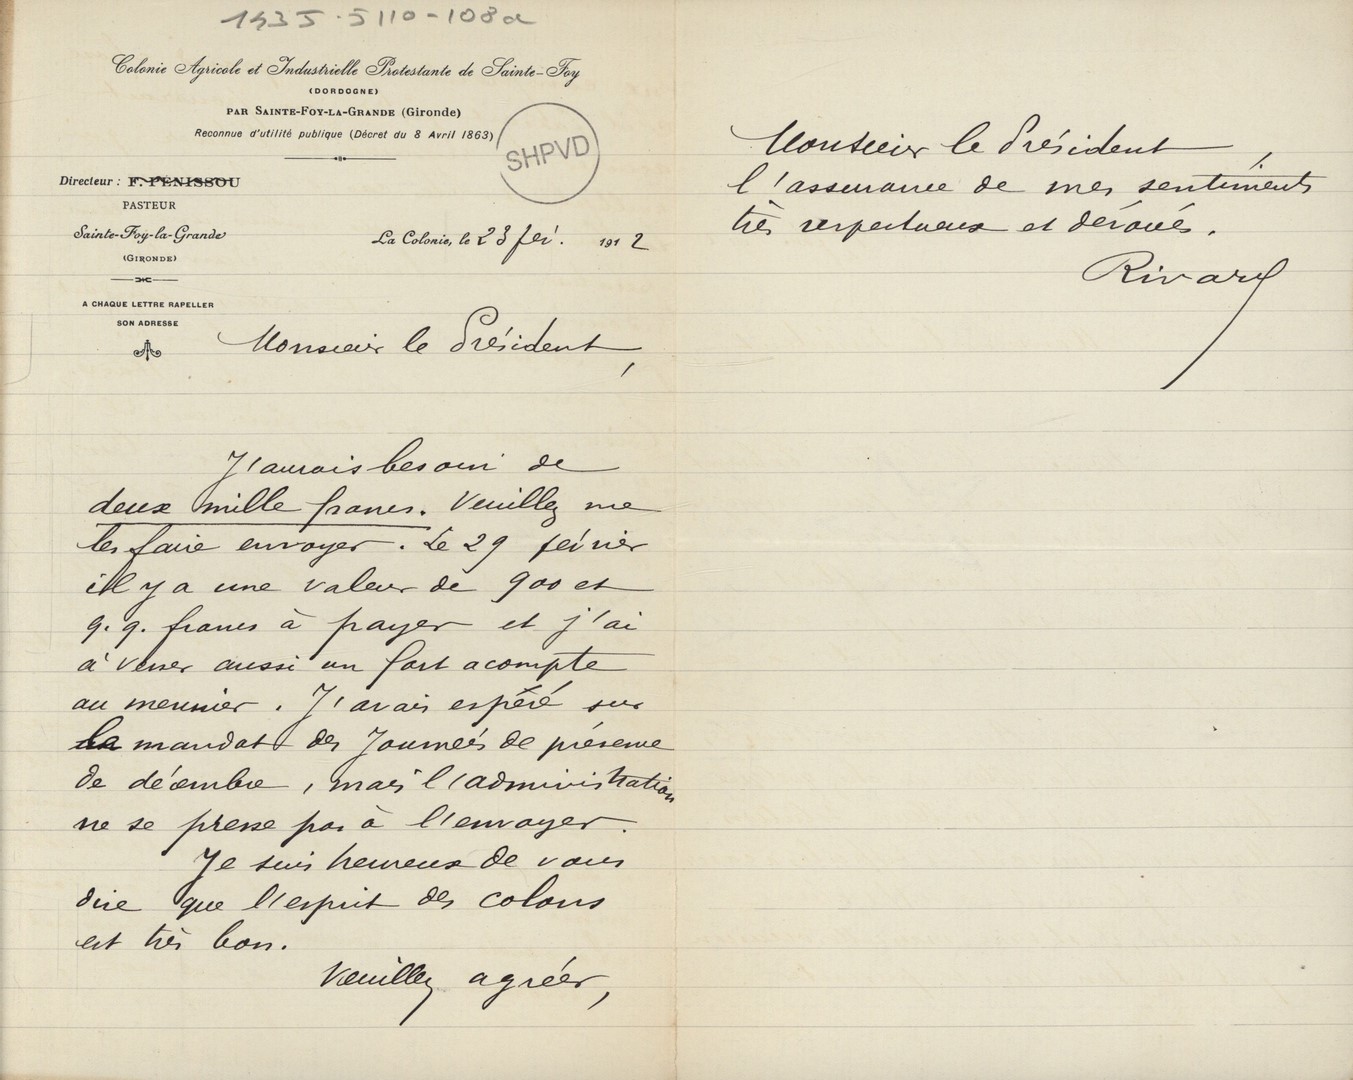 1935.5110-108a
Colonie Agricole et Industrielle Protestante de Sainte-Foy
(DORDOGNE)
PAR SAINTE-FOY-LA-GRANDE (Gironde)
Reconnue d'utilité publique (Décret du 8 Avril 1863)
SHPVD
Directeur : F. PÉNISSOU
PASTEUR
Sainte-Foy-la-Grande
(GIRONDE)
La Colonie, le 23 fév. 1912
A CHAQUE LETTRE RAPELLER
SON ADRESSE
Monsieur le Président,
J'aurais besoin de
deux mille francs. Veuillez me
les faire envoyer. Le 29 février
il y a une valeur de 900 et
q.q. francs à payer et j'ai
à verser aussi un fort acompte
au meunier. J'avais espéré sur
le mandat des Journées de présence
de décembre, mais l'administration
ne se presse pas à l'envoyer.
Je suis heureux de vous
dire que l'esprit des colons
est très bon.
Veuillez agréer,
Monsieur le Président,
l'assurance de mes sentiments
très respectueux et dévoués.
Rivard